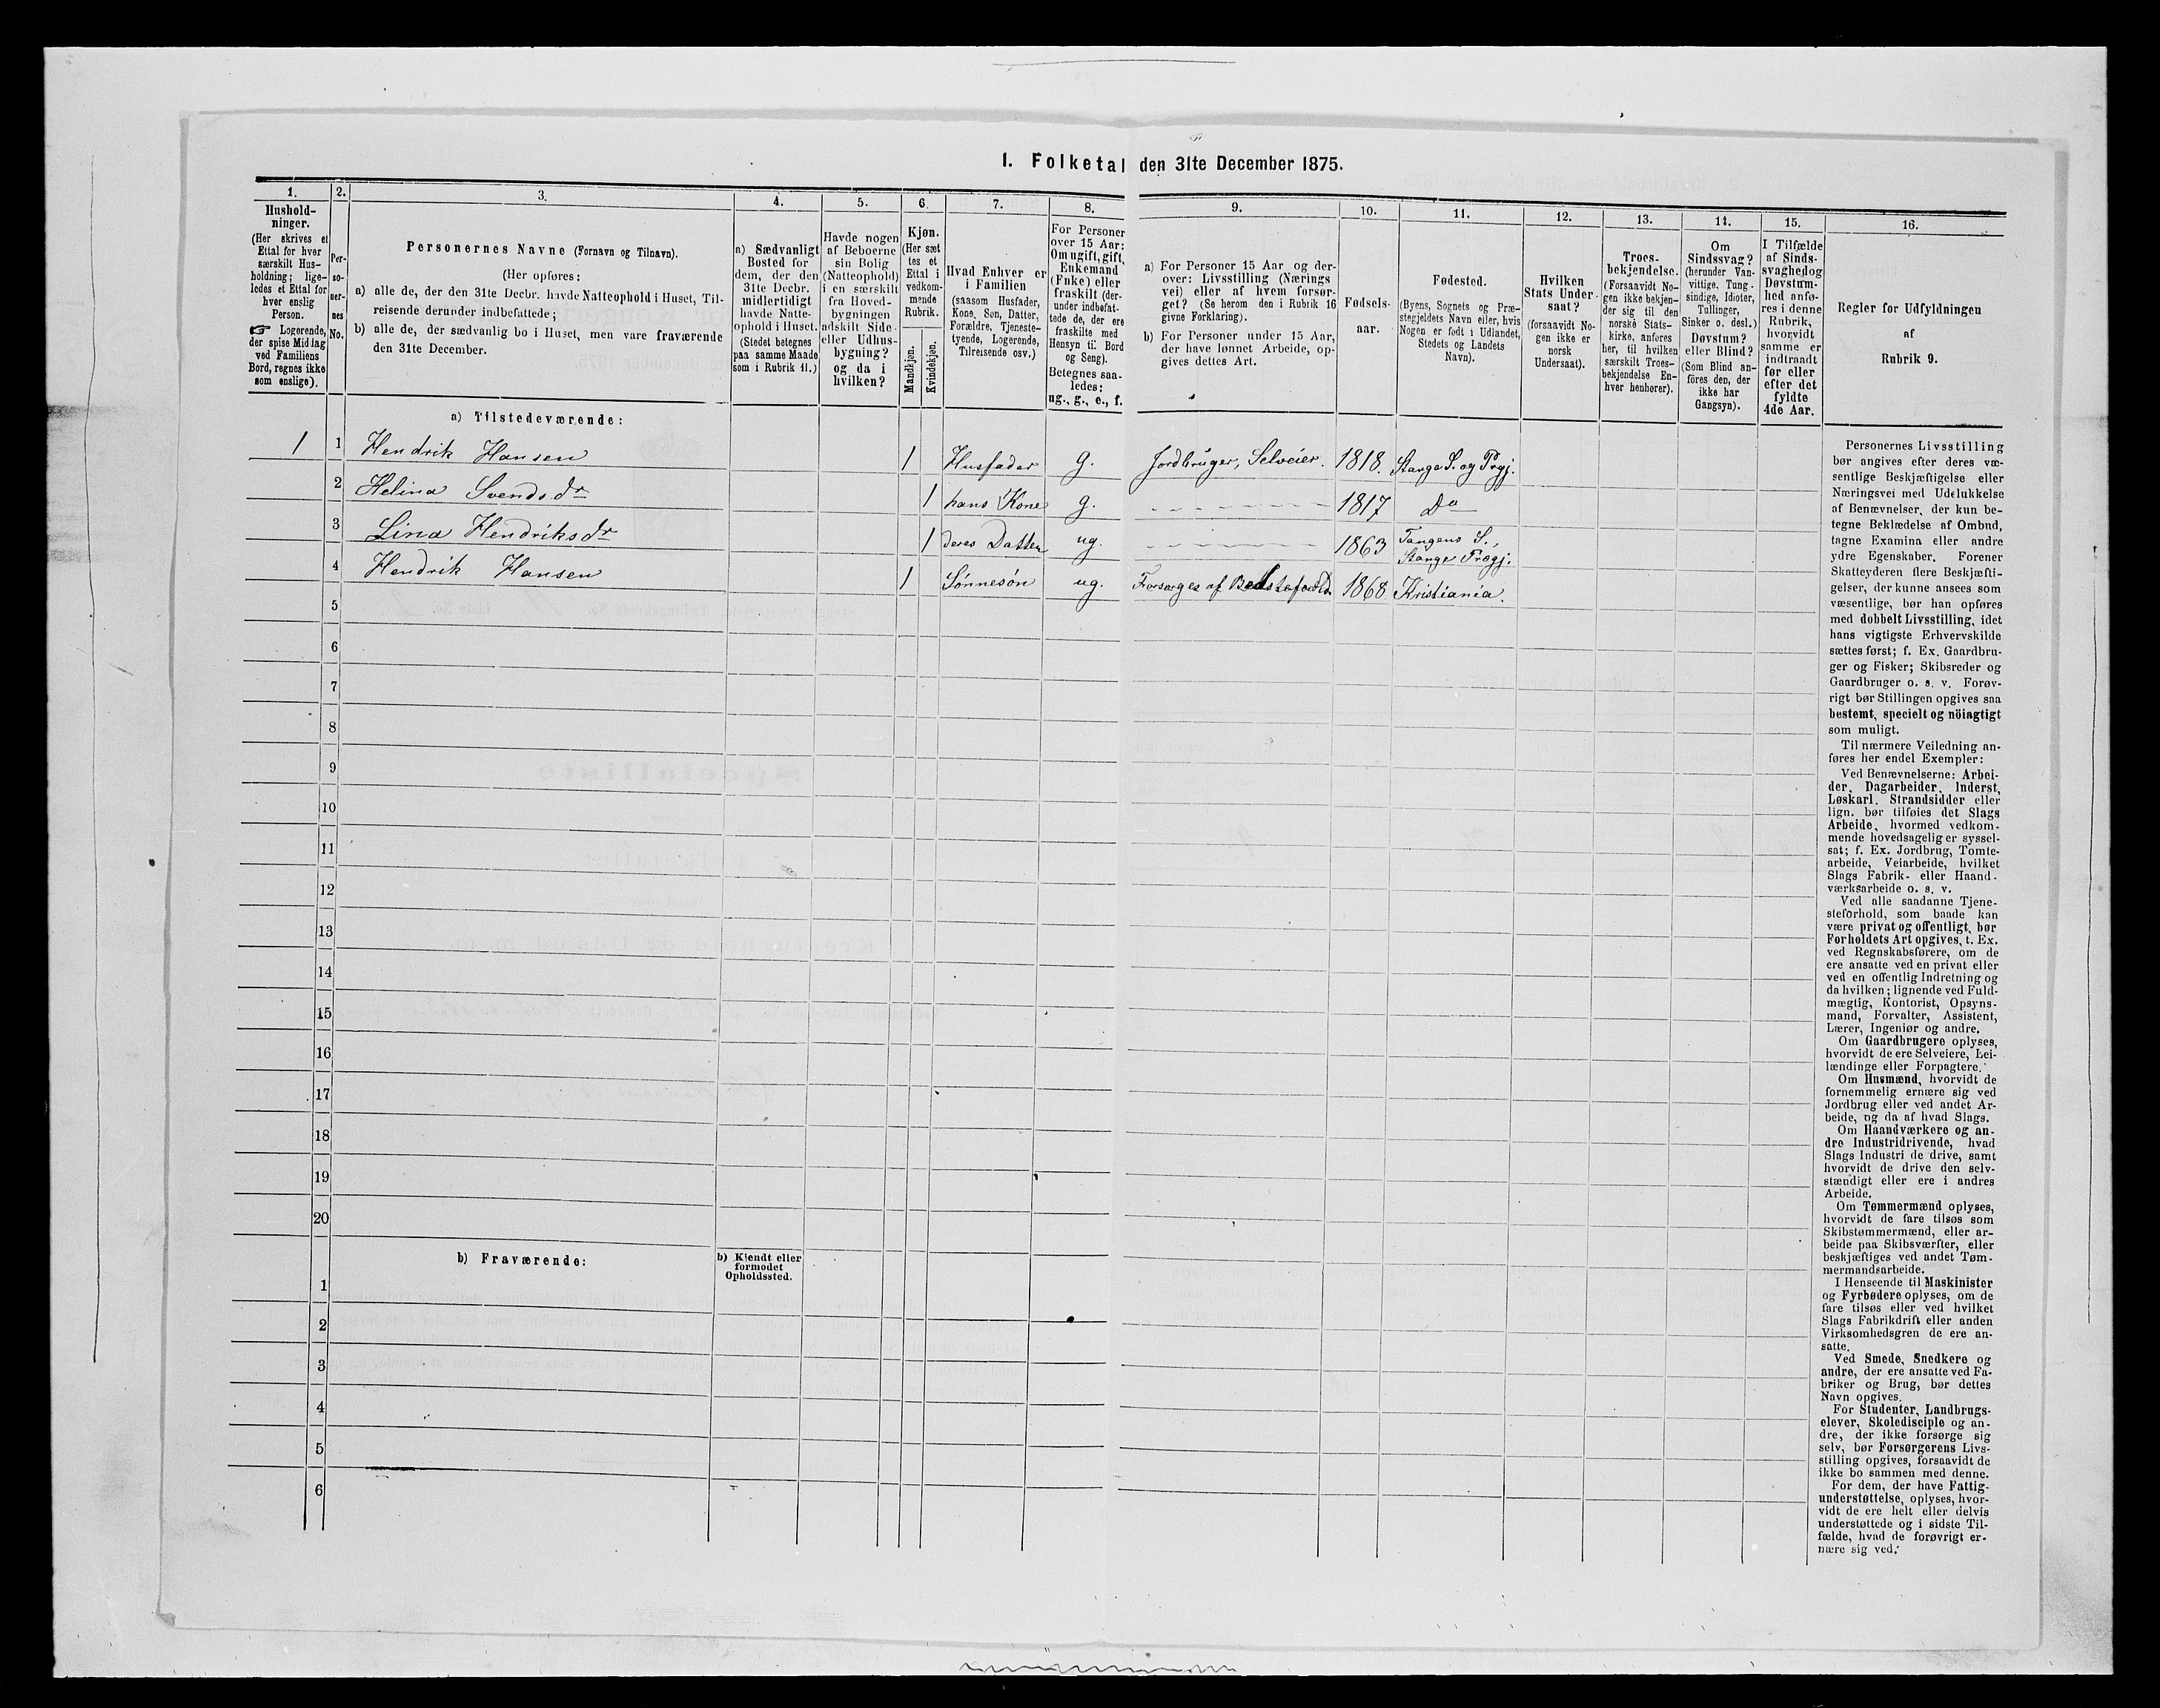 I. Folketal den 31te December 1875.
1.
Hushold-
ninger.
(Her skrives et
Ettal for hver
særskilt Hus-
holdning; lige-
ledes et Ettal for
hver enslig
Person.
☞ Logerende,
der spise Middag
ved Familiens
Bord, regnes ikke
som enslige).
2.
Per-
so-
ner-
nes
No.
3.
Personernes Navne (Fornavn og Tilnavn).
(Her opføres:
a) alle de, der den 31te Decbr. havde Natteophold i Huset, Til-
reisende derunder indbefattede;
b) alle de, der sædvanlig bo i Huset, men vare fraværende
den 31te December.
4.
a) Sædvanligt
Bosted for
dem, der den
31te Decbr.
midlertidigt
havde Natte-
ophold i Huset.
(Stedet betegnes
paa samme Maade
som i Rubrik 11.)
5.
Havde nogen
af Beboerne
sin Bolig
(Natteophold)
i en særskilt
fra Hoved-
bygningen
adskilt Side-
eller Udhus-
bygning?
og da i
hvilken?
6.
Kjøn.
(Her sæt
tes et
Ettal i
vedkom-
mende
Rubrik.
Mandkjøn.
Kvindekjøn.
7.
Hvad Enhver er
i Familien
(saasom Husfader,
Kone, Søn, Datter,
Forældre, Tjeneste-
tyende, Logerende,
Tilreisende osv.)
8.
For Personer
over 15 Aar:
Om ugift, gift,
Enkemand
(Enke) eller
fraskilt (der-
under indbefat-
tede de, der ere
fraskilte med
Hensyn til Bord
og Seng).
Betegnes saa-
ledes:
ug., g., e., f.
9.
a) For Personer 15 Aar og der-
over: Livsstilling (Nærings
vei) eller af hvem forsør-
get? (Se herom den i Rubrik 16
givne Forklaring).
b) For Personer under 15 Aar,
der have lønnet Arbeide, op-
gives dettes Art.
10.
Fødsels-
aar.
11.
Fødested.
(Byens, Sognets og Præ-
stegjeldets Navn eller, hvis
Nogen er født i Udlandet,
Stedets og Landets
Navn).
12.
Hvilken
Stats Under-
saat?
(forsaavidt No-
gen ikke er
norsk
Undersaat).
13.
Troes-
bekjendelse.
(Forsaavidt No-
gen ikke bekjen-
der sig til den
norske Stats-
kirke, anføres
her, til hvilken
særskilt Troes-
bekjendelse En-
hver henhører).
14.
Om
Sindssvag?
(herunder Van-
vittige, Tung-
sindige, Idioter,
Tullinger,
Sinker o. desl.)
Døvstum?
eller Blind?
(Som Blind an-
føres den, der
ikke har
Gangsyn).
15.
I Tilfælde
af Sinds-
svaghed og
Døvstum-
hed anfø-
res i denne
Rubrik,
hvorvidt
samme er
indtraadt
før eller
efter det
fyldte
4de Aar.
16.
Regler for Udfyldningen
af
Rubrik 9.
a) Tilstedeværende:
1 1 Hendrik Hansen 1 Husfader g. Jordbruger, Selveier. 1818. Stange S. og Prgj.
2 Helina Svendsdr 1 hans Kone g. - - - - - - 1817 Do
3 Lina Hendriksdr 1 deres Datter ug. - - - - - - 1863 Tangens S., Stange Prgj.
4 Hendrik Hansen 1 Sønnesøn ug. Forsørges af 1868 Kristiania.
5
6
7
8
9
10
11
12
13
14
15
16
17
18
19
20
b) Fraværende:
b) Kjendt eller
formodet
Opholdssted.
1
2
3
4
5
6
Personernes Livsstilling
bør angives efter deres væ-
sentlige Beskjæftigelse eller
Næringsvei med Udelukkelse
af Benævnelser, der kun be-
tegne Beklædelse af Ombud,
tagne Examina eller andre
ydre Egenskaber. Forener
Skatteyderen flere Beskjæfti-
gelser, der kunne ansees som
væsentlige, bør han opføres
med dobbelt Livsstilling, idet
hans vigtigste Erhvervskilde
sættes først; f. Ex. Gaardbru-
ger og Fisker; Skibsreder og
Gaardbruger o. s. v. Forøv-
rigt bør Stillingen opgives saa
bestemt, specielt og nöiagtigt
som muligt.
Til nærmere Veiledning an-
føres her endel Exempler:
Ved Benævnelserne: Arbei-
der, Dagarbeider, Inderst,
Løskarl, Strandsidder eller
lign. bør tilføies det Slags
Arbeide, hvormed vedkom-
mende hovedsagelig er syssel-
sat; f. Ex. Jordbrug, Tomte-
arbeide, Veiarbeide, hvilket
Slags Fabrik- eller Haand-
værksarbeide o. s. v.
Ved alle saadanne Tjene-
steforhold, som baade kan
være privat og offentligt, bør
Forholdets Art opgives, t. Ex.
ved Regnskabsførere, om de
ere ansatte ved en privat eller
ved en offentlig Indretning og
da hvilken; lignende ved Fuld-
mægtig, Kontorist, Opsyns-
mand, Forvalter, Assistent,
Lærer, Ingeniør og andre.
Om Gaardbrugere oplyses,
hvorvidt de ere Selveiere, Lei-
lændinge eller Forpagtere.
Om Husmænd, hvorvidt de
fornemmelig ernære sig ved
Jordbrug eller ved andet Ar-
beide, og da af hvad Slags.
Om Haandværkere og an-
dre Industridrivende, hvad
Slags Industri de drive, samt
hvorvidt de drive den selv-
stændigt eller ere i andres
Arbeide.
Om Tømmermænd oplyses,
hvorvidt de fare tilsøs som
Skibstømmermænd, eller ar-
beide paa Skibsværfter, eller
beskjæftiges ved andet Tøm-
mermandsarbeide.
I Henseende til Maskinister
og Fyrbødere oplyses, om de
fare tilsøs eller ved hvilket
Slags Fabrikdrift eller anden
Virksomhedsgren de ere an-
satte.
Ved Smede, Snedkere og
andre, der ere ansatte ved Fa-
briker og Brug, bør dettes
Navn opgives.
For Studenter, Landbrugs-
elever, Skoledisciple og an-
dre, der ikke forsørge sig
selv, bør Forsørgerens Livs-
stilling opgives, forsaavidt de
ikke bo sammen med denne.
For dem, der have Fattig-
understøttelse, oplyses, hvor-
vidt de ere helt eller delvis
understøttede og i sidste Til-
fælde, hvad de forøvrigt er-
nære sig ved.